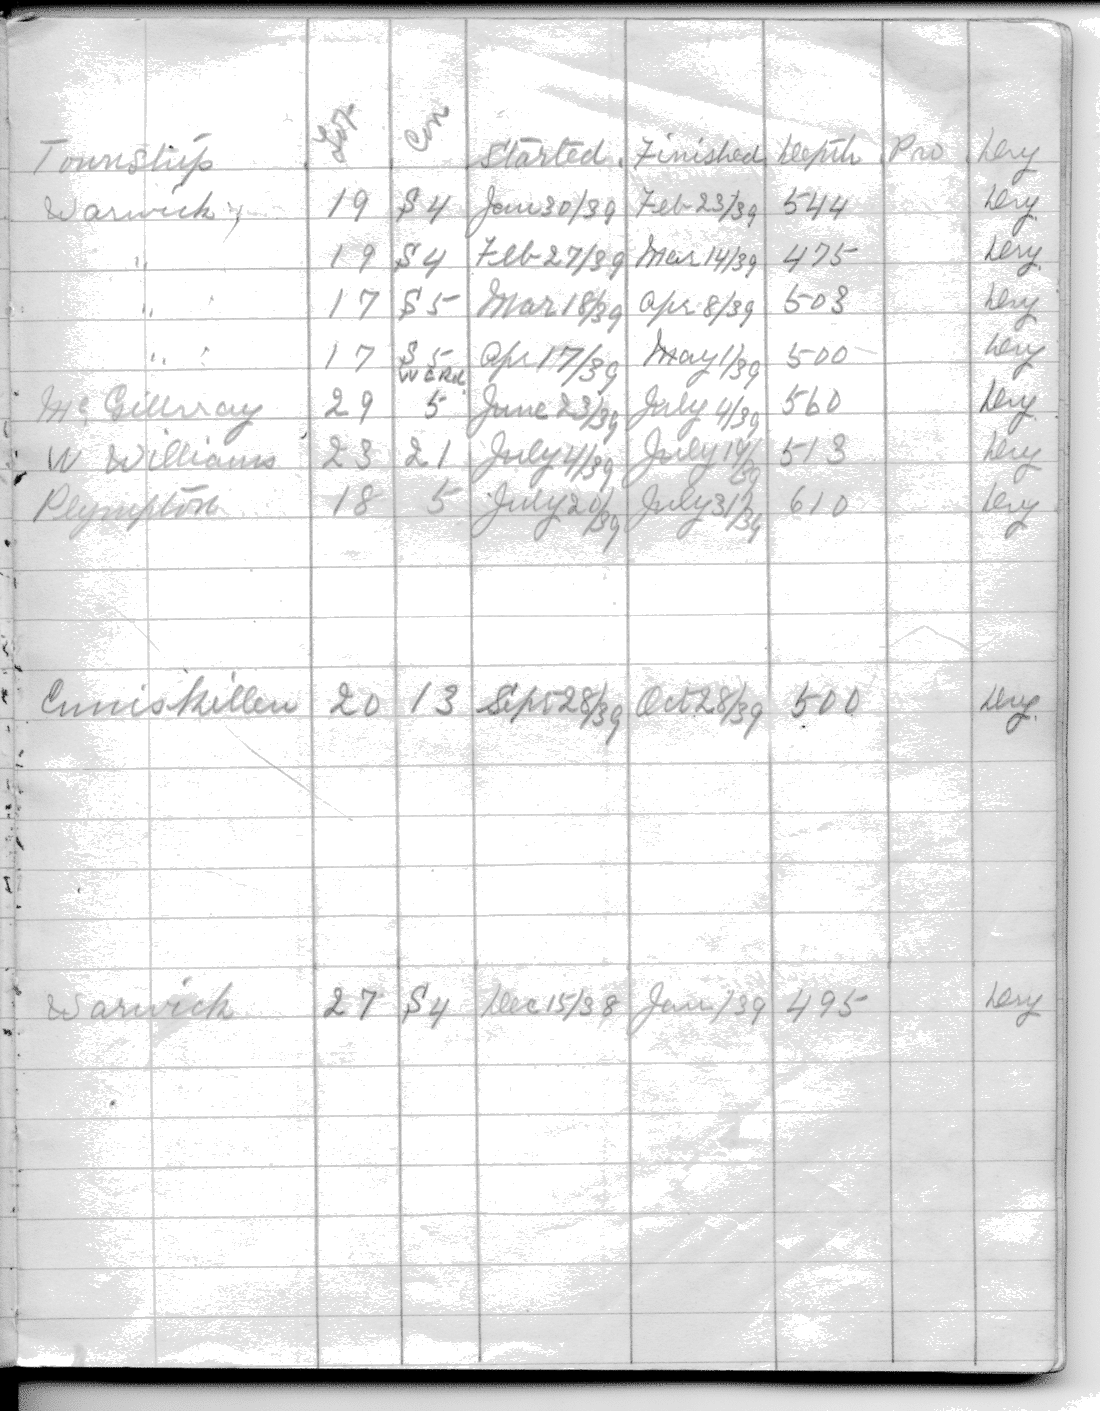 Township Lot Con Started Finished Depth Pro Dry
Warwick 19 S 4 Jan 30/39 Feb 23/39 544 Dry
" 19 S 4 Feb 27/39 Mar 14/39 475 Dry
" 17 S 5 Mar 18/39 Apr 8/39 503 Dry
" 17 S 5 Apr 17/39 May 1/39 500 Dry
Mc Gillivray 29 5 June 23/39 July 4/39 560 Dry
W Williams 23 21 July 4/39 July 19/39 513 Dry
Plympton 18 5 July 20/39 July 31/39 610 Dry
Enniskillen 20 13 Sept 28/39 Oct 28/39 500 Dry
Warwick 27 S 4 Dec 15/38 Jan /39 495 Dry